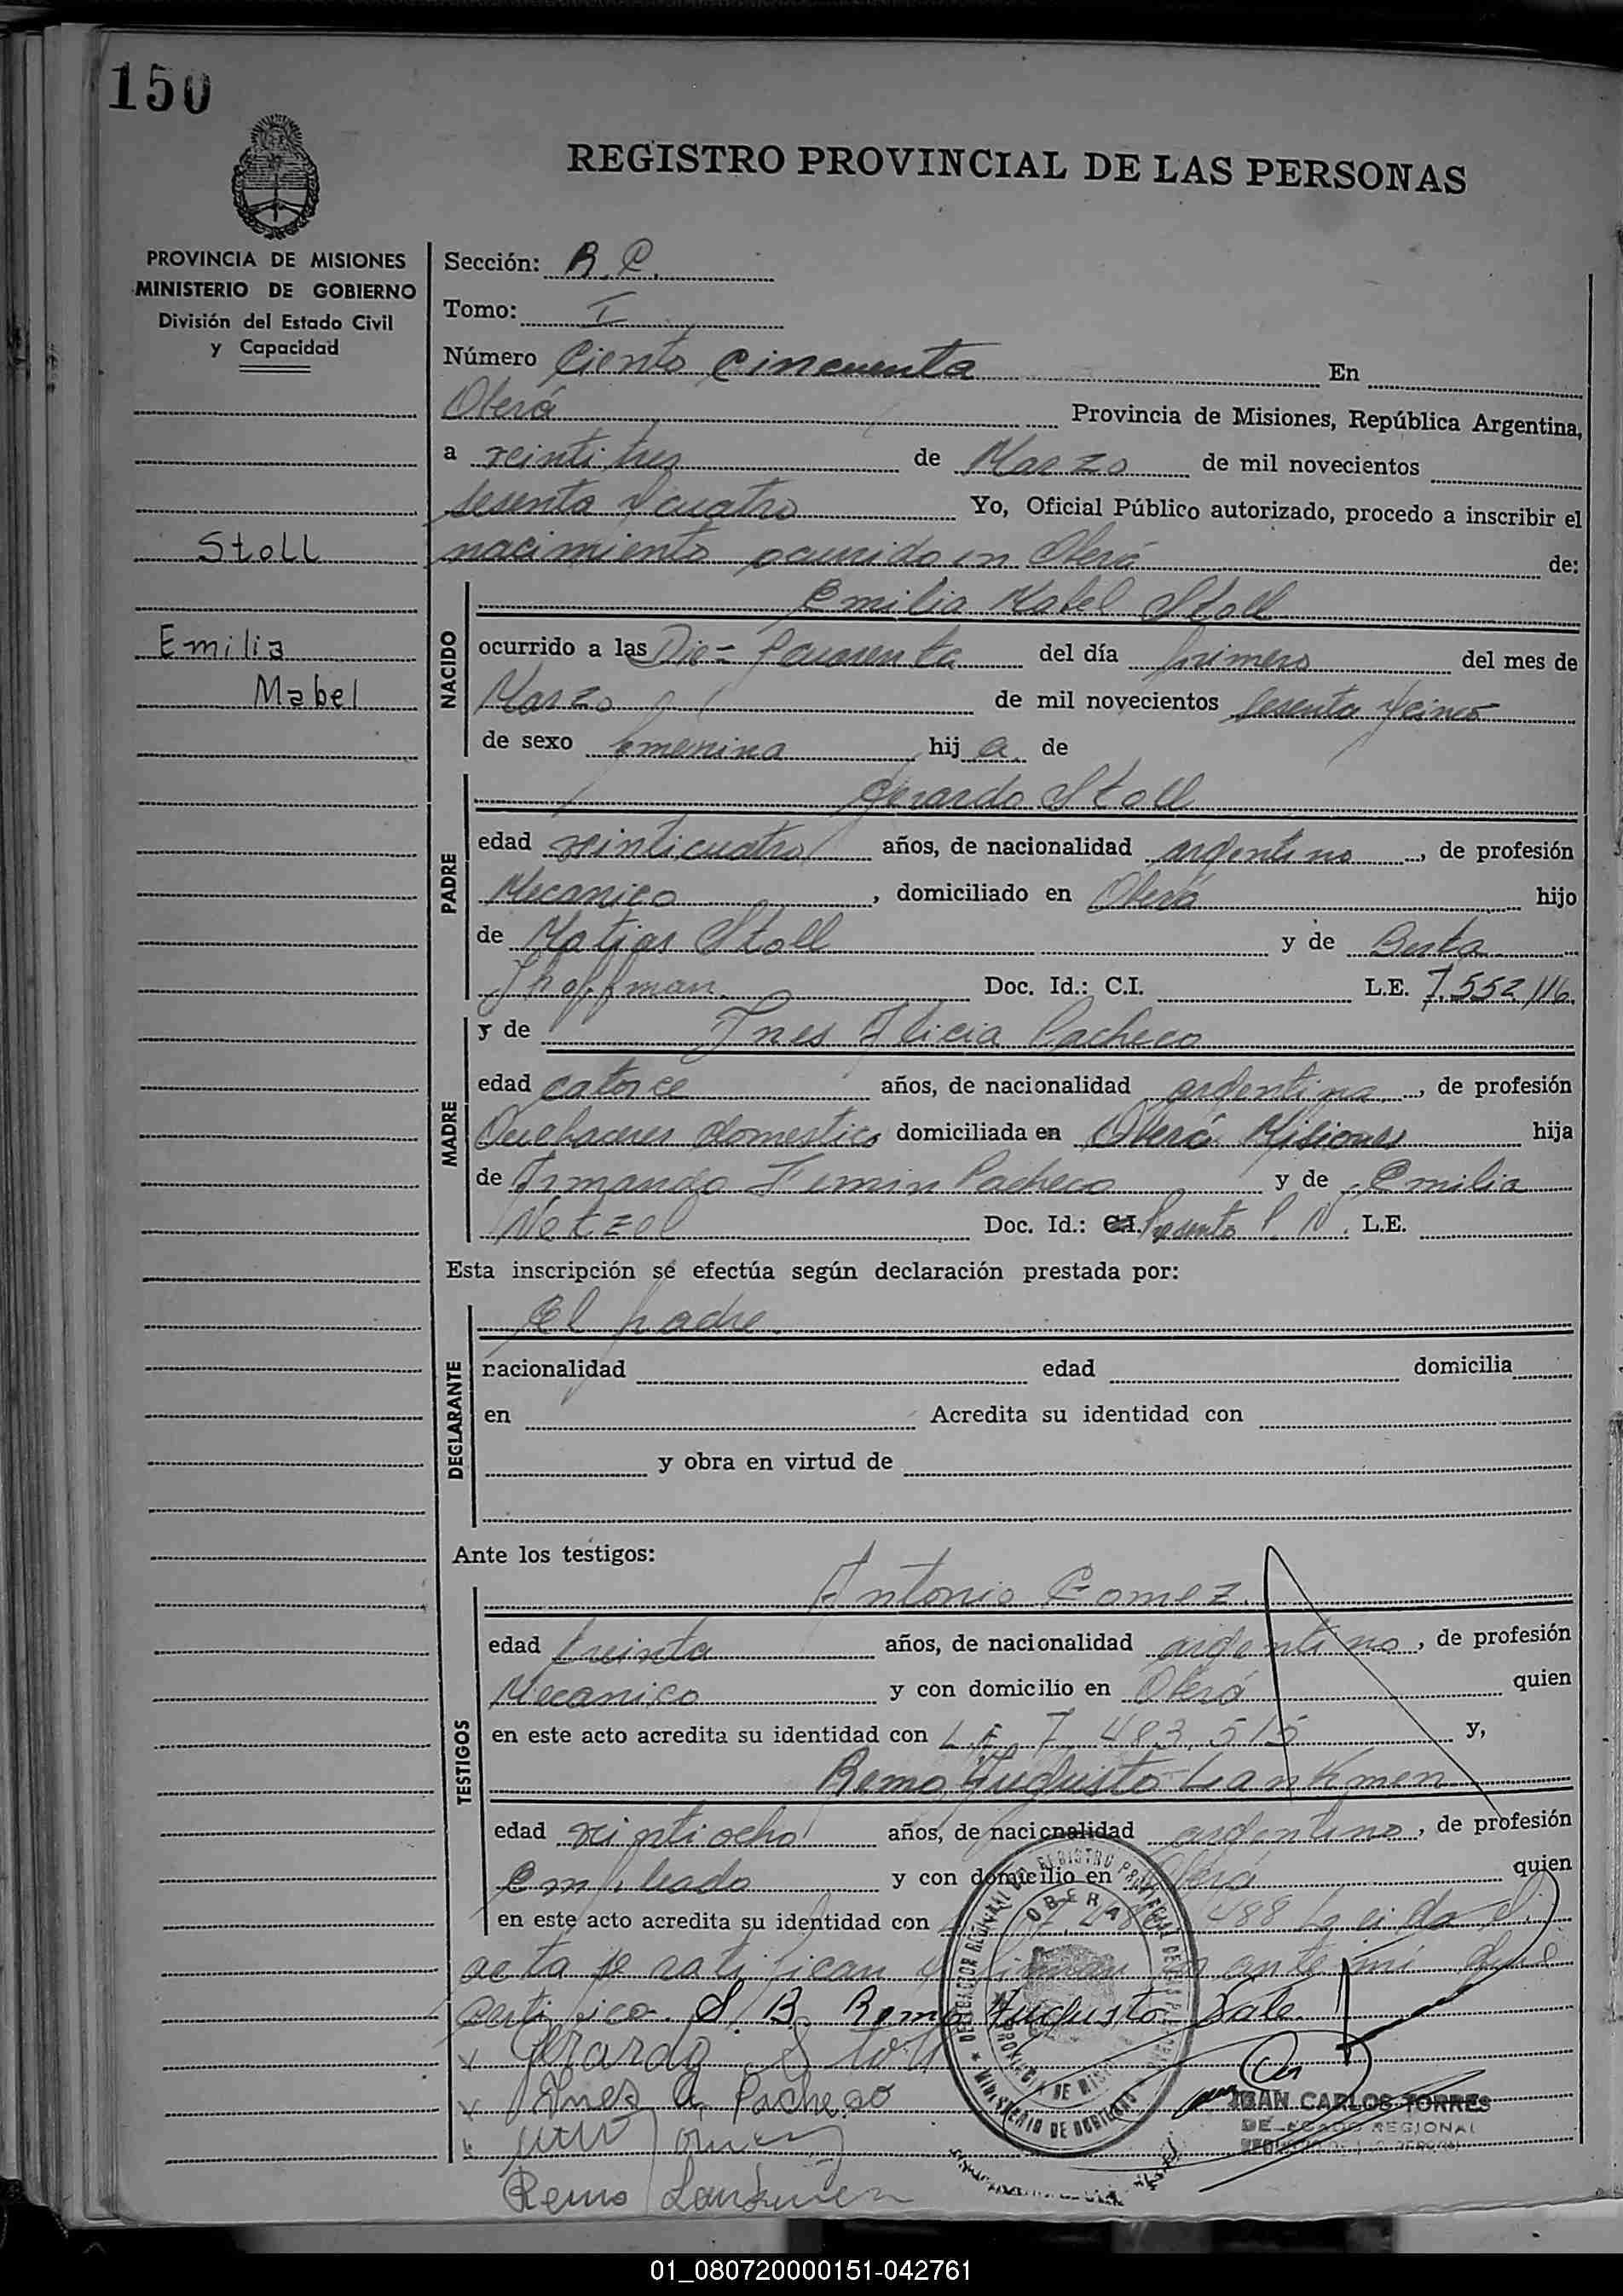 150
REGISTRO PROVINCIAL DE LAS PERSONAS
PROVINCIA DE MISIONES
MINISTERIO DE GOBIERNO
División del Estado Civil
y Capacidad
Stoll
Emilia
Mabel
Sección: B. C.
Tomo: I
Número Ciento cincuenta En
Oberá Provincia de Misiones, República Argentina,
a veintitres de Marzo de mil novecientos
sesenta y cuatro Yo, Oficial Público autorizado, procedo a inscribir el
nacimiento ocurrido en Oberá de:
NACIDO
Emilia Mabel Stoll
ocurrido a las Diez y cuarenta del día primero del mes de
Marzo de mil novecientos sesenta y cinco
de sexo femenina hij a de
PADRE
Gerardo Stoll
edad veinticuatro años, de nacionalidad argentino, de profesión
Mecanico, domiciliado en Oberá hijo
de Matias Stoll y de Berta
Doc. Id.: C.I. L.E. 7.552.116
MADRE
y de Ines Alicia Pacheco
edad catorce años, de nacionalidad argentina, de profesión
Quehaceres domestico domiciliada en Oberá Misiones hija
de Armando Fermin Pacheco y de Emilia
Netzel Doc. Id.: C.I. Presento P. N. L.E.
Esta inscripción se efectúa según declaración prestada por:
DECLARANTE
El padre
nacionalidad edad domicilia
en Acredita su identidad con
y obra en virtud de
Ante los testigos:
TESTIGOS
Antonio Gomez
edad treinta años, de nacionalidad argentino, de profesión
Mecanico y con domicilio en Oberá quien
en este acto acredita su identidad con L. E. 7.483.515 y,
Remo Augusto Lankmen
edad veintiocho años, de nacionalidad argentino, de profesión
Empleado y con domicilio en Oberá quien
en este acto acredita su identidad con 488 Leida el
acta se ratifican y firman ante mi que
certifico. S. B. Remo Augusto Vale.
x Gerardo Stoll
x Ines A. Pacheco
x Gomez
Remo Lankmen
OBERA
PROVINCIA DE MISIONES
MINISTERIO DE GOBIERNO
JUAN CARLOS TORRES
DELEGADO REGIONAL
01_080720000151-042761